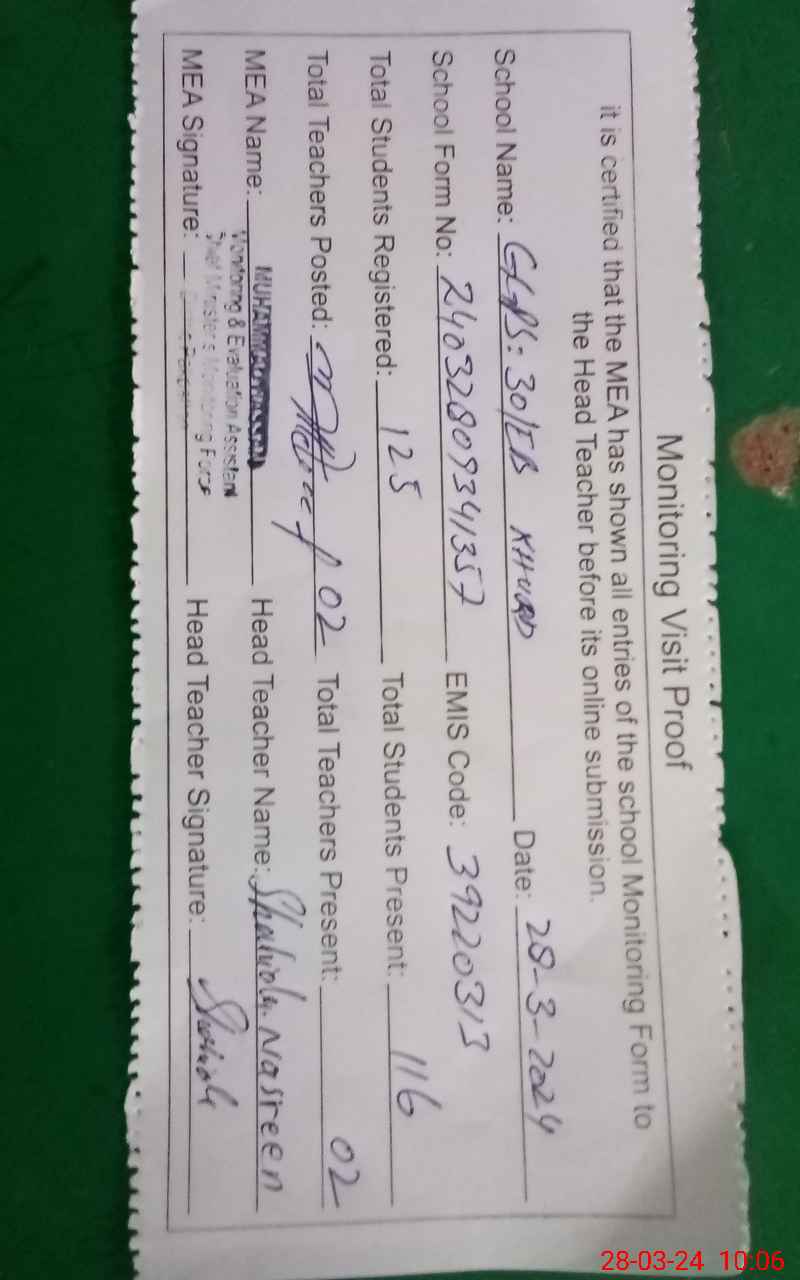 Monitoring Visit Proof
it is certified that the MEA has shown all entries of the school Monitoring Form to
the Head Teacher before its online submission.
School Name: GGPS: 30/EB KHURD Date: 28-3-2024
School Form No: 24032809341357 EMIS Code: 39220313
Total Students Registered: 125 Total Students Present: 116
Total Teachers Posted: 02 Total Teachers Present: 02
MEA Name: MUHAMMAD Head Teacher Name: Nasreen
Monitoring & Evaluation Assistant
Chief Minister's Monitoring Force
MEA Signature: Head Teacher Signature:
28-03-24 10:06